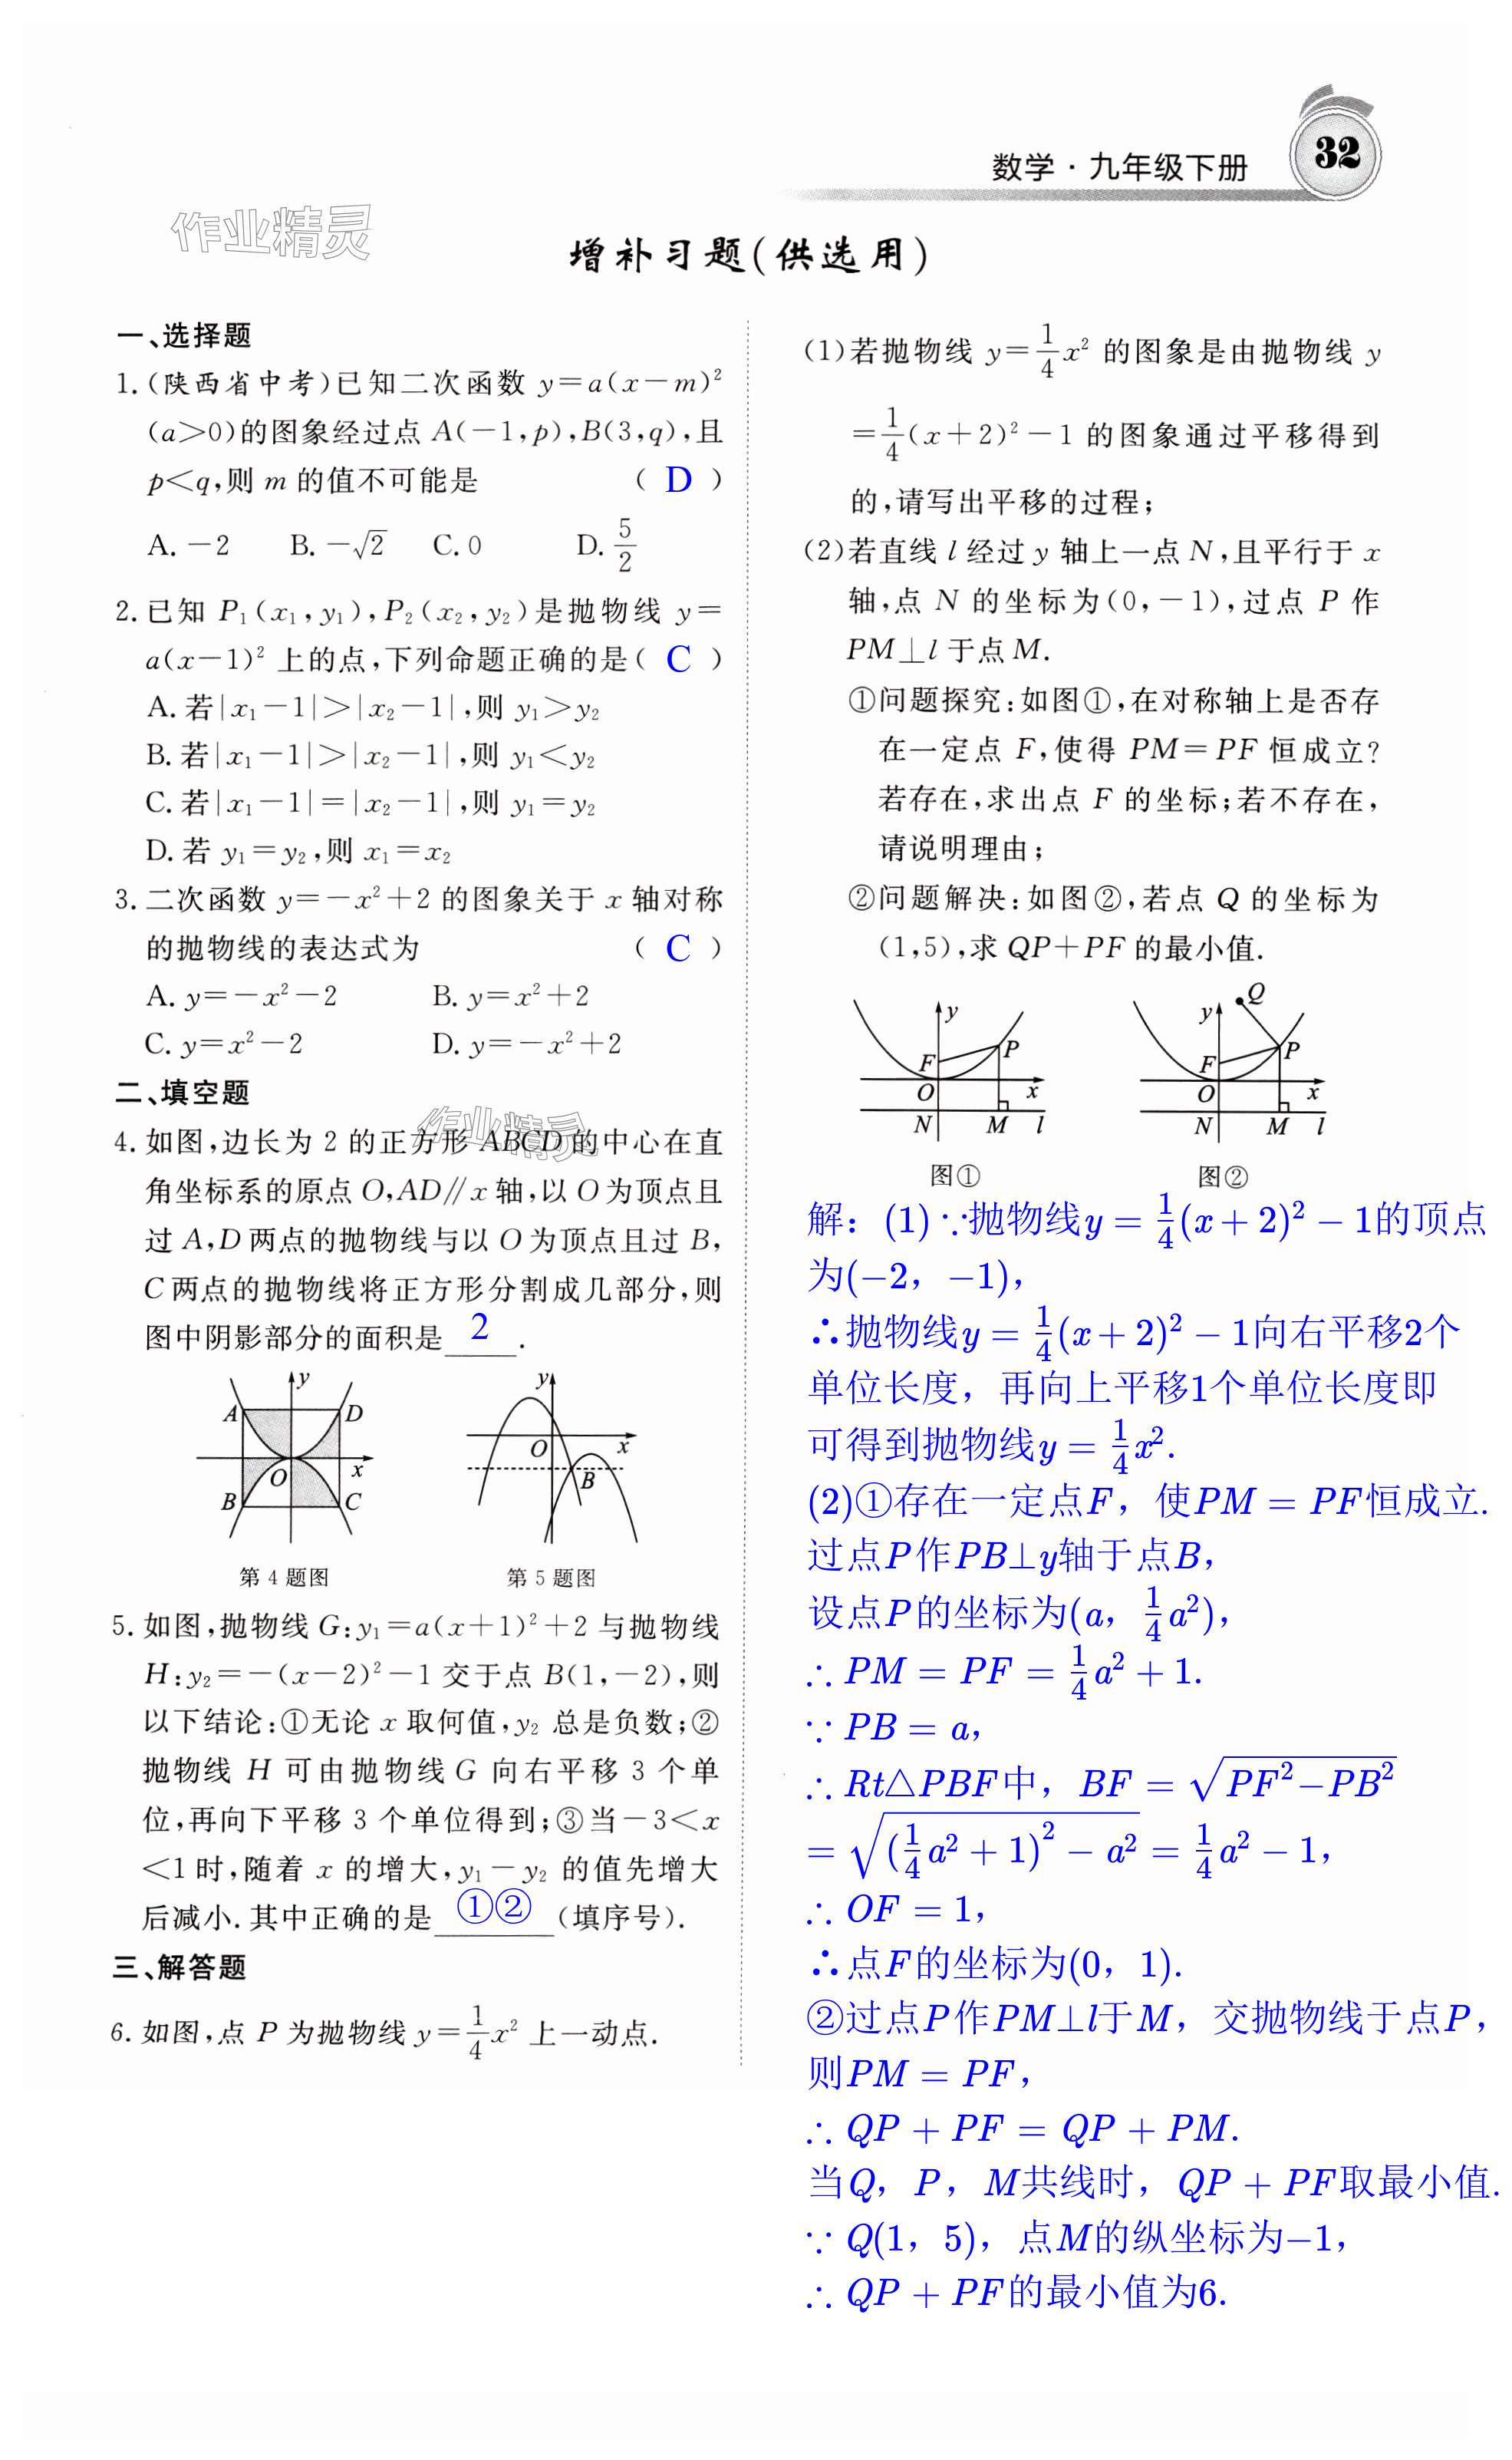 数学·九年级下册
32
作业精灵
增补习题(供选用)
一、选择题
1.(陕西省中考)已知二次函数 y=a(x-m)²
(a>0)的图象经过点 A(-1,p),B(3,q),且
p<q,则 m 的值不可能是 ( D )
A. -2 B. -√2 C. 0 D. 5/2
2. 已知 P₁(x₁,y₁),P₂(x₂,y₂)是抛物线 y=
a(x-1)² 上的点,下列命题正确的是( C )
A. 若|x₁-1|>|x₂-1|,则 y₁>y₂
B. 若|x₁-1|>|x₂-1|,则 y₁<y₂
C. 若|x₁-1|=|x₂-1|,则 y₁=y₂
D. 若 y₁=y₂,则 x₁=x₂
3. 二次函数 y=-x²+2 的图象关于 x 轴对称
的抛物线的表达式为 ( C )
A. y=-x²-2 B. y=x²+2
C. y=x²-2 D. y=-x²+2
二、填空题
作业精灵
4. 如图,边长为 2 的正方形 ABCD 的中心在直
角坐标系的原点 O,AD∥x 轴,以 O 为顶点且
过 A,D 两点的抛物线与以 O 为顶点且过 B,
C 两点的抛物线将正方形分割成几部分,则
图中阴影部分的面积是 2 .
y A D O x B C
y O x B
第 4 题图 第 5 题图
5. 如图,抛物线 G:y₁=a(x+1)²+2 与抛物线
H:y₂=-(x-2)²-1 交于点 B(1,-2),则
以下结论:①无论 x 取何值,y₂ 总是负数;②
抛物线 H 可由抛物线 G 向右平移 3 个单
位,再向下平移 3 个单位得到;③当-3<x
<1 时,随着 x 的增大,y₁-y₂ 的值先增大
后减小. 其中正确的是 ①② (填序号).
三、解答题
6. 如图,点 P 为抛物线 y=1/4x² 上一动点.
(1)若抛物线 y=1/4x² 的图象是由抛物线 y
=1/4(x+2)²-1 的图象通过平移得到
的,请写出平移的过程;
(2)若直线 l 经过 y 轴上一点 N,且平行于 x
轴,点 N 的坐标为(0,-1),过点 P 作
PM⊥l 于点 M.
①问题探究:如图①,在对称轴上是否存
在一定点 F,使得 PM=PF 恒成立?
若存在,求出点 F 的坐标;若不存在,
请说明理由;
②问题解决:如图②,若点 Q 的坐标为
(1,5),求 QP+PF 的最小值.
y F P O x N M l
y Q F P O x N M l
图① 图②
解：(1) ∵抛物线y = 1/4(x + 2)² − 1的顶点
为(−2，−1)，
∴抛物线y = 1/4(x + 2)² − 1向右平移2个
单位长度，再向上平移1个单位长度即
可得到抛物线y = 1/4x².
(2)①存在一定点F，使PM = PF恒成立.
过点P作PB⊥y轴于点B，
设点P的坐标为(a，1/4a²)，
∴ PM = PF = 1/4a² + 1.
∵ PB = a，
∴ Rt△PBF中，BF = √(PF²−PB²)
= √((1/4a² + 1)² − a²) = 1/4a² − 1，
∴ OF = 1，
∴点F的坐标为(0，1).
②过点P作PM⊥l于M，交抛物线于点P，
则PM = PF，
∴ QP + PF = QP + PM.
当Q，P，M共线时，QP + PF取最小值.
∵ Q(1，5)，点M的纵坐标为−1，
∴ QP + PF的最小值为6.